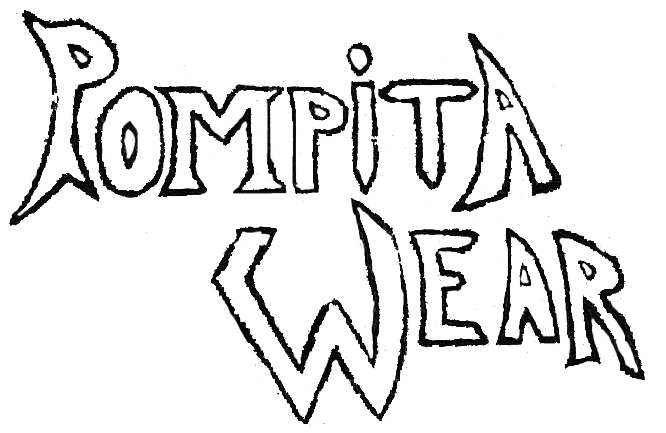 POMPiTA
WEAR